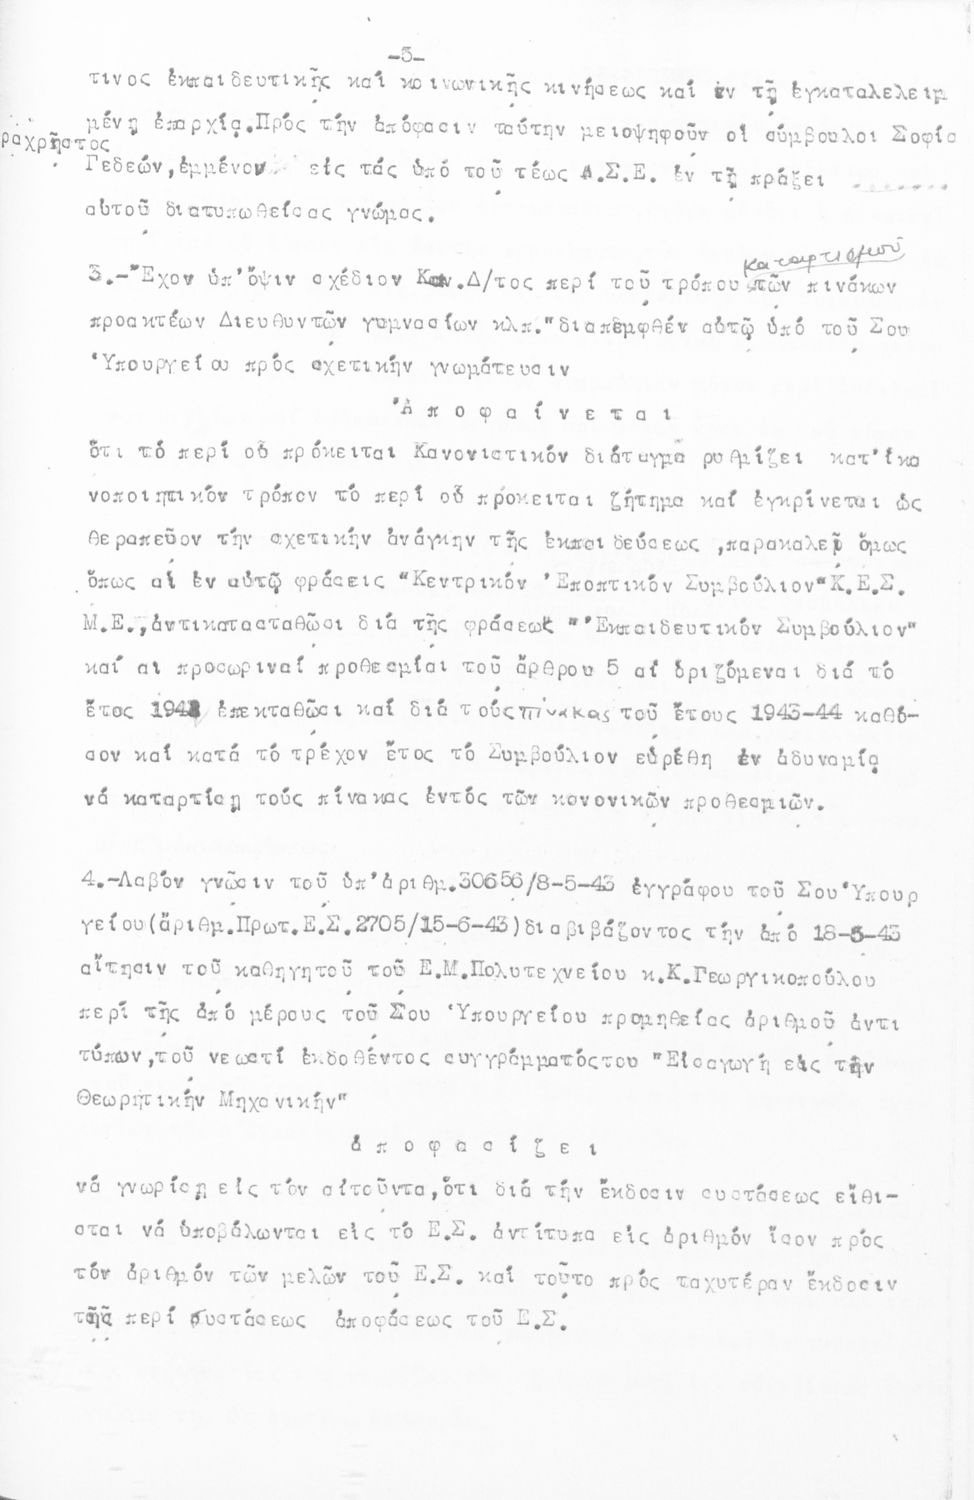 -5-
τινος ἐκπαιδευτικῆς καί κοινωνικῆς κινήσεως καί ἐν τῇ ἐγκαταλελειμ
μένῃ ἐπαρχίᾳ.Πρός τήν ἀπόφασιν ταύτην μειοψηφοῦν οἱ σύμβουλοι Σοφία
ραχρῆστος
Γεδεών,ἐμμένον εἰς τάς ὑπό τοῦ τέως Α.Σ.Ε. ἐν τῇ πράξει
αὐτοῦ διατυπωθείσας γνώμας.
καταρτισμοῦ
3.-Ἔχον ὑπ'ὄψιν σχέδιον Καν.Δ/τος περί τοῦ τρόπου τῶν πινάκων
προακτέων Διευθυντῶν γυμνασίων κλπ."διαπεμφθέν αὐτῷ ὑπό τοῦ Σου
Ὑπουργείου πρός σχετικήν γνωμάτευσιν
Ἀ π ο φ α ί ν ε τ α ι
ὅτι τό περί οὗ πρόκειται Κανονιστικόν διάταγμα ρυθμίζει κατ'ἱκα
νοποιητικόν τρόπον τό περί οὗ πρόκειται ζήτημα καί ἐγκρίνεται ὡς
θεραπεῦον τήν σχετικήν ἀνάγκην τῆς ἐκπαιδεύσεως ,παρακαλεῖ ὅμως
ὅπως αἱ ἐν αὐτῷ φράσεις "Κεντρικόν Ἐποπτικόν Συμβούλιον"Κ.Ε.Σ.
Μ.Ε.,ἀντικατασταθῶσι διά τῆς φράσεως "Ἐκπαιδευτικόν Συμβούλιον"
καί αι προσωριναί προθεσμίαι τοῦ ἄρθρου 5 αἱ ὁριζόμεναι διά τό
ἔτος 1943 ἐπεκταθῶσι καί διά τούς πίνακας τοῦ ἔτους 1943-44 καθό-
σον καί κατά τό τρέχον ἔτος τό Συμβούλιον εὑρέθη ἐν ἀδυναμίᾳ
νά καταρτίσῃ τούς πίνακας ἐντός τῶν κανονικῶν προθεσμιῶν.
4.-Λαβόν γνῶσιν τοῦ ὑπ'ἀριθμ.30656/8-5-43 ἐγγράφου τοῦ Σου Ὑπουρ
γείου(ἀριθμ.Πρωτ.Ε.Σ.2705/15-6-43)διαβιβάζοντος τήν ἀπό 18-5-43
αἴτησιν τοῦ καθηγητοῦ τοῦ Ε.Μ.Πολυτεχνείου κ.Κ.Γεωργικοπούλου
περί τῆς ἀπό μέρους τοῦ Σου Ὑπουργείου προμηθείας ἀριθμοῦ ἀντι
τύπων,τοῦ νεωστί ἐκδοθέντος συγγράμματόςτου "Εἰσαγωγή εἰς τήν
Θεωρητικήν Μηχανικήν"
ἀ π ο φ α σ ί ζ ε ι
νά γνωρίσῃ εἰς τόν αἰτοῦντα,ὅτι διά τήν ἔκδοσιν συστάσεως εἴθι-
σται νά ὑποβάλωνται εἰς τό Ε.Σ. ἀντίτυπα εἰς ἀριθμόν ἴσον πρός
τόν ἀριθμόν τῶν μελῶν τοῦ Ε.Σ. καί τοῦτο πρός ταχυτέραν ἔκδοσιν
τῆς περί συστάσεως ἀποφάσεως τοῦ Ε.Σ.